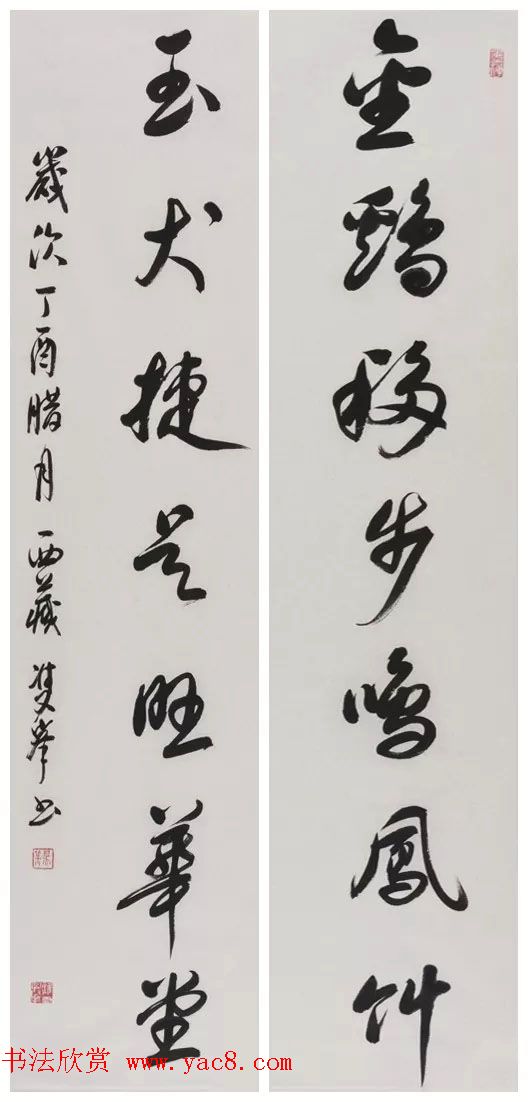 金鷄移步鳴鳳竹
玉犬捷足旺華堂
歲次丁酉腊月西藏雙峰书
书法欣赏 www.yac8.com